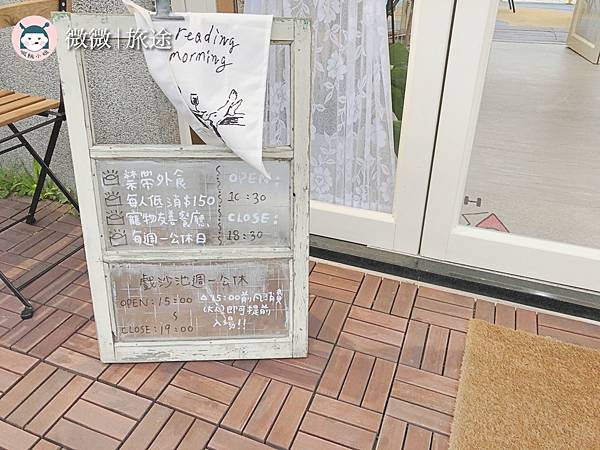 微微|旅途
reading
morning
禁帶外食 OPEN:
每人低消$150 10:30
寵物友善餐廳! CLOSE:
每週一公休日 18:30
戲沙池週一公休
OPEN:15:00
~
CLOSE:19:00
△15:00前凡消費
即可提前
入場!!